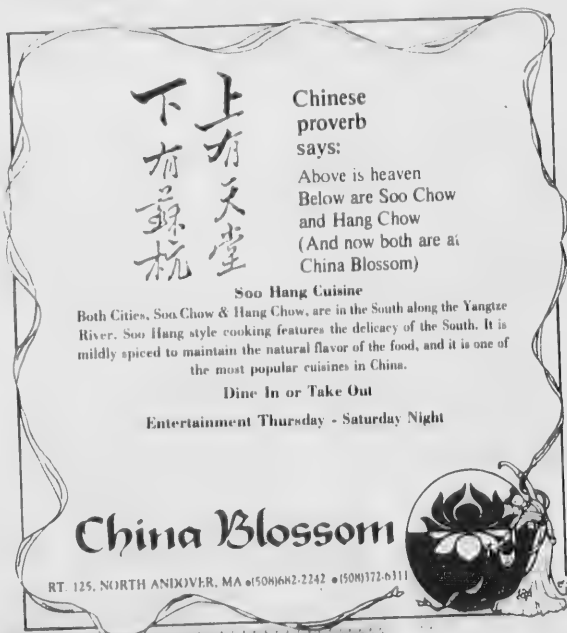 上有天堂
下有蘇杭
Chinese
proverb
says:
Above is heaven
Below are Soo Chow
and Hang Chow
(And now both are at
China Blossom)
Soo Hang Cuisine
Both Cities, Soo Chow & Hang Chow, are in the South along the Yangtze
River. Soo Hang style cooking features the delicacy of the South. It is
mildly spiced to maintain the natural flavor of the food, and it is one of
the most popular cuisines in China.
Dine In or Take Out
Entertainment Thursday - Saturday Night
China Blossom
RT. 125, NORTH ANDOVER, MA •(508)682-2242 •(508)372-6311